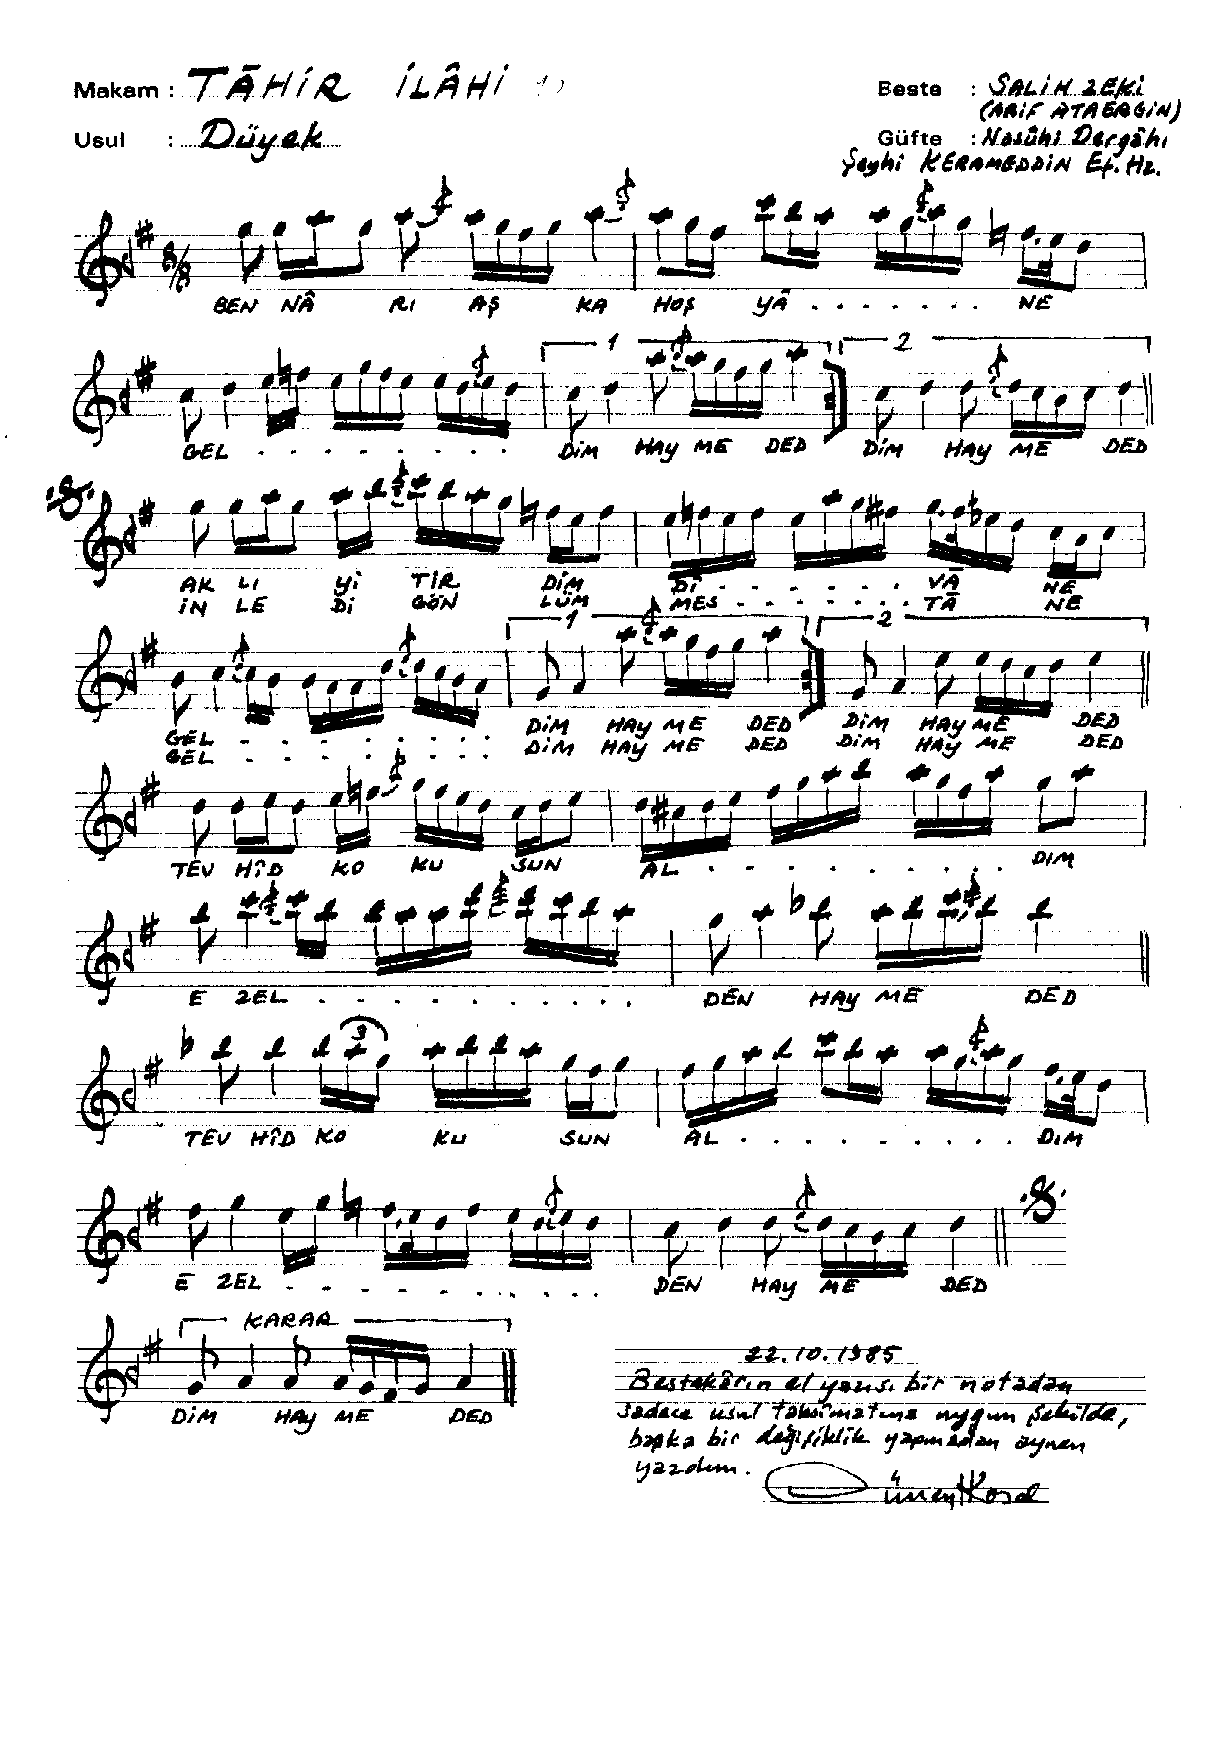 Makam : TÂHİR İLÂHİ
Beste : SALİH ZEKİ
(ARİF ATAERGİN)
Usul : Düyek
Güfte : Nasûhi Dergâhı
Şeyhi KERAMEDDİN Ef. Hz.
8/8
BEN NÂ RI AŞ KA HOŞ YÂ . . . . . . NE
1 2
GEL . . . . . . . DİM HAY ME DED DİM HAY ME DED
AK LI Yİ TİR DİM Dİ - - - - - - VÂ NE
İN LE Dİ GÖN LÜM MES - - - - - - TÂ NE
1 2
GEL - - - - - - - DİM HAY ME DED DİM HAY ME DED
GEL - - - - - - - DİM HAY ME DED DİM HAY ME DED
TEV HÎD KO KU SUN AL . . . . . . . . DIM
E ZEL . . . . . . . . . DEN HAY ME DED
3
TEV HÎD KO KU SUN AL . . . . . . . . DIM
E ZEL - - - - - . . . . DEN HAY ME DED
KARAR
DİM HAY ME DED
22.10.1985
Bestekârın el yazısı bir notadan
sadece usul taksimatına uygun şekilde,
başka bir değişiklik yapmadan aynen
yazdım.